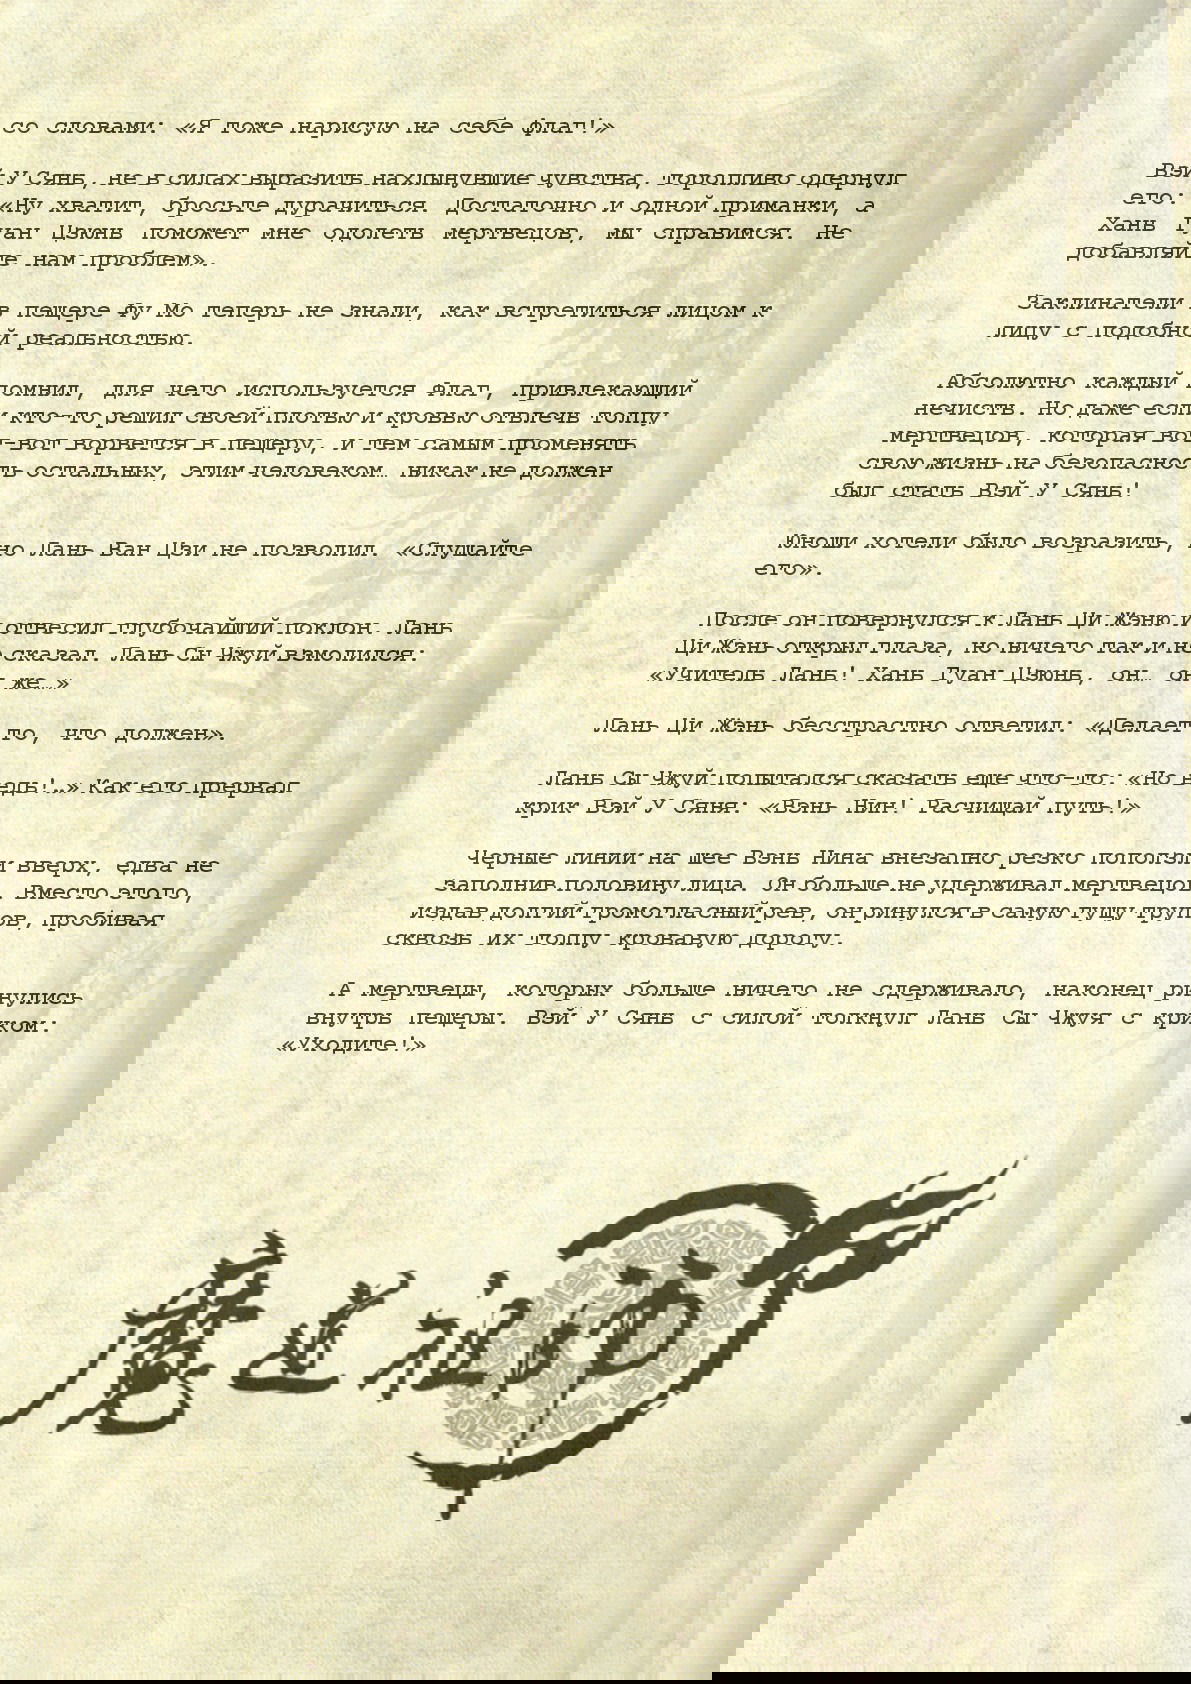 со словами: «Я тоже нарисую на себе флаг!»
Вэй У Сянь, не в силах выразить нахлынувшие чувства, торопливо одернул
его: «Ну хватит, бросьте дурачиться. Достаточно и одной приманки, а
Хань Гуан Цзюнь поможет мне одолеть мертвецов, мы справимся. Не
добавляйте нам проблем».
Заклинатели в пещере Фу Мо теперь не знали, как встретиться лицом к
лицу с подобной реальностью.
Абсолютно каждый помнил, для чего используется Флаг, привлекающий
нечисть. Но даже если кто-то решил своей плотью и кровью отвлечь толпу
мертвецов, которая вот-вот ворвется в пещеру, и тем самым променять
свою жизнь на безопасность остальных, этим человеком… никак не должен
был стать Вэй У Сянь!
Юноши хотели было возразить, но Лань Ван Цзи не позволил. «Слушайте
его».
После он повернулся к Лань Ци Жэню и отвесил глубочайший поклон. Лань
Ци Жэнь открыл глаза, но ничего так и не сказал. Лань Сы Чжуй взмолился:
«Учитель Лань! Хань Гуан Цзюнь, он… он же…»
Лань Ци Жэнь бесстрастно ответил: «Делает то, что должен».
Лань Сы Чжуй попытался сказать еще что-то: «Но ведь!…» Как его прервал
крик Вэй У Сяня: «Вэнь Нин! Расчищай путь!»
Черные линии на шее Вэнь Нина внезапно резко поползли вверх, едва не
заполнив половину лица. Он больше не удерживал мертвецов. Вместо этого,
издав долгий громогласный рев, он ринулся в самую гущу трупов, пробивая
сквозь их толпу кровавую дорогу.
А мертвецы, которых больше ничего не сдерживало, наконец ринулись
внутрь пещеры. Вэй У Сянь с силой толкнул Лань Сы Чжуя с криком:
«Уходите!»
魔道祖师